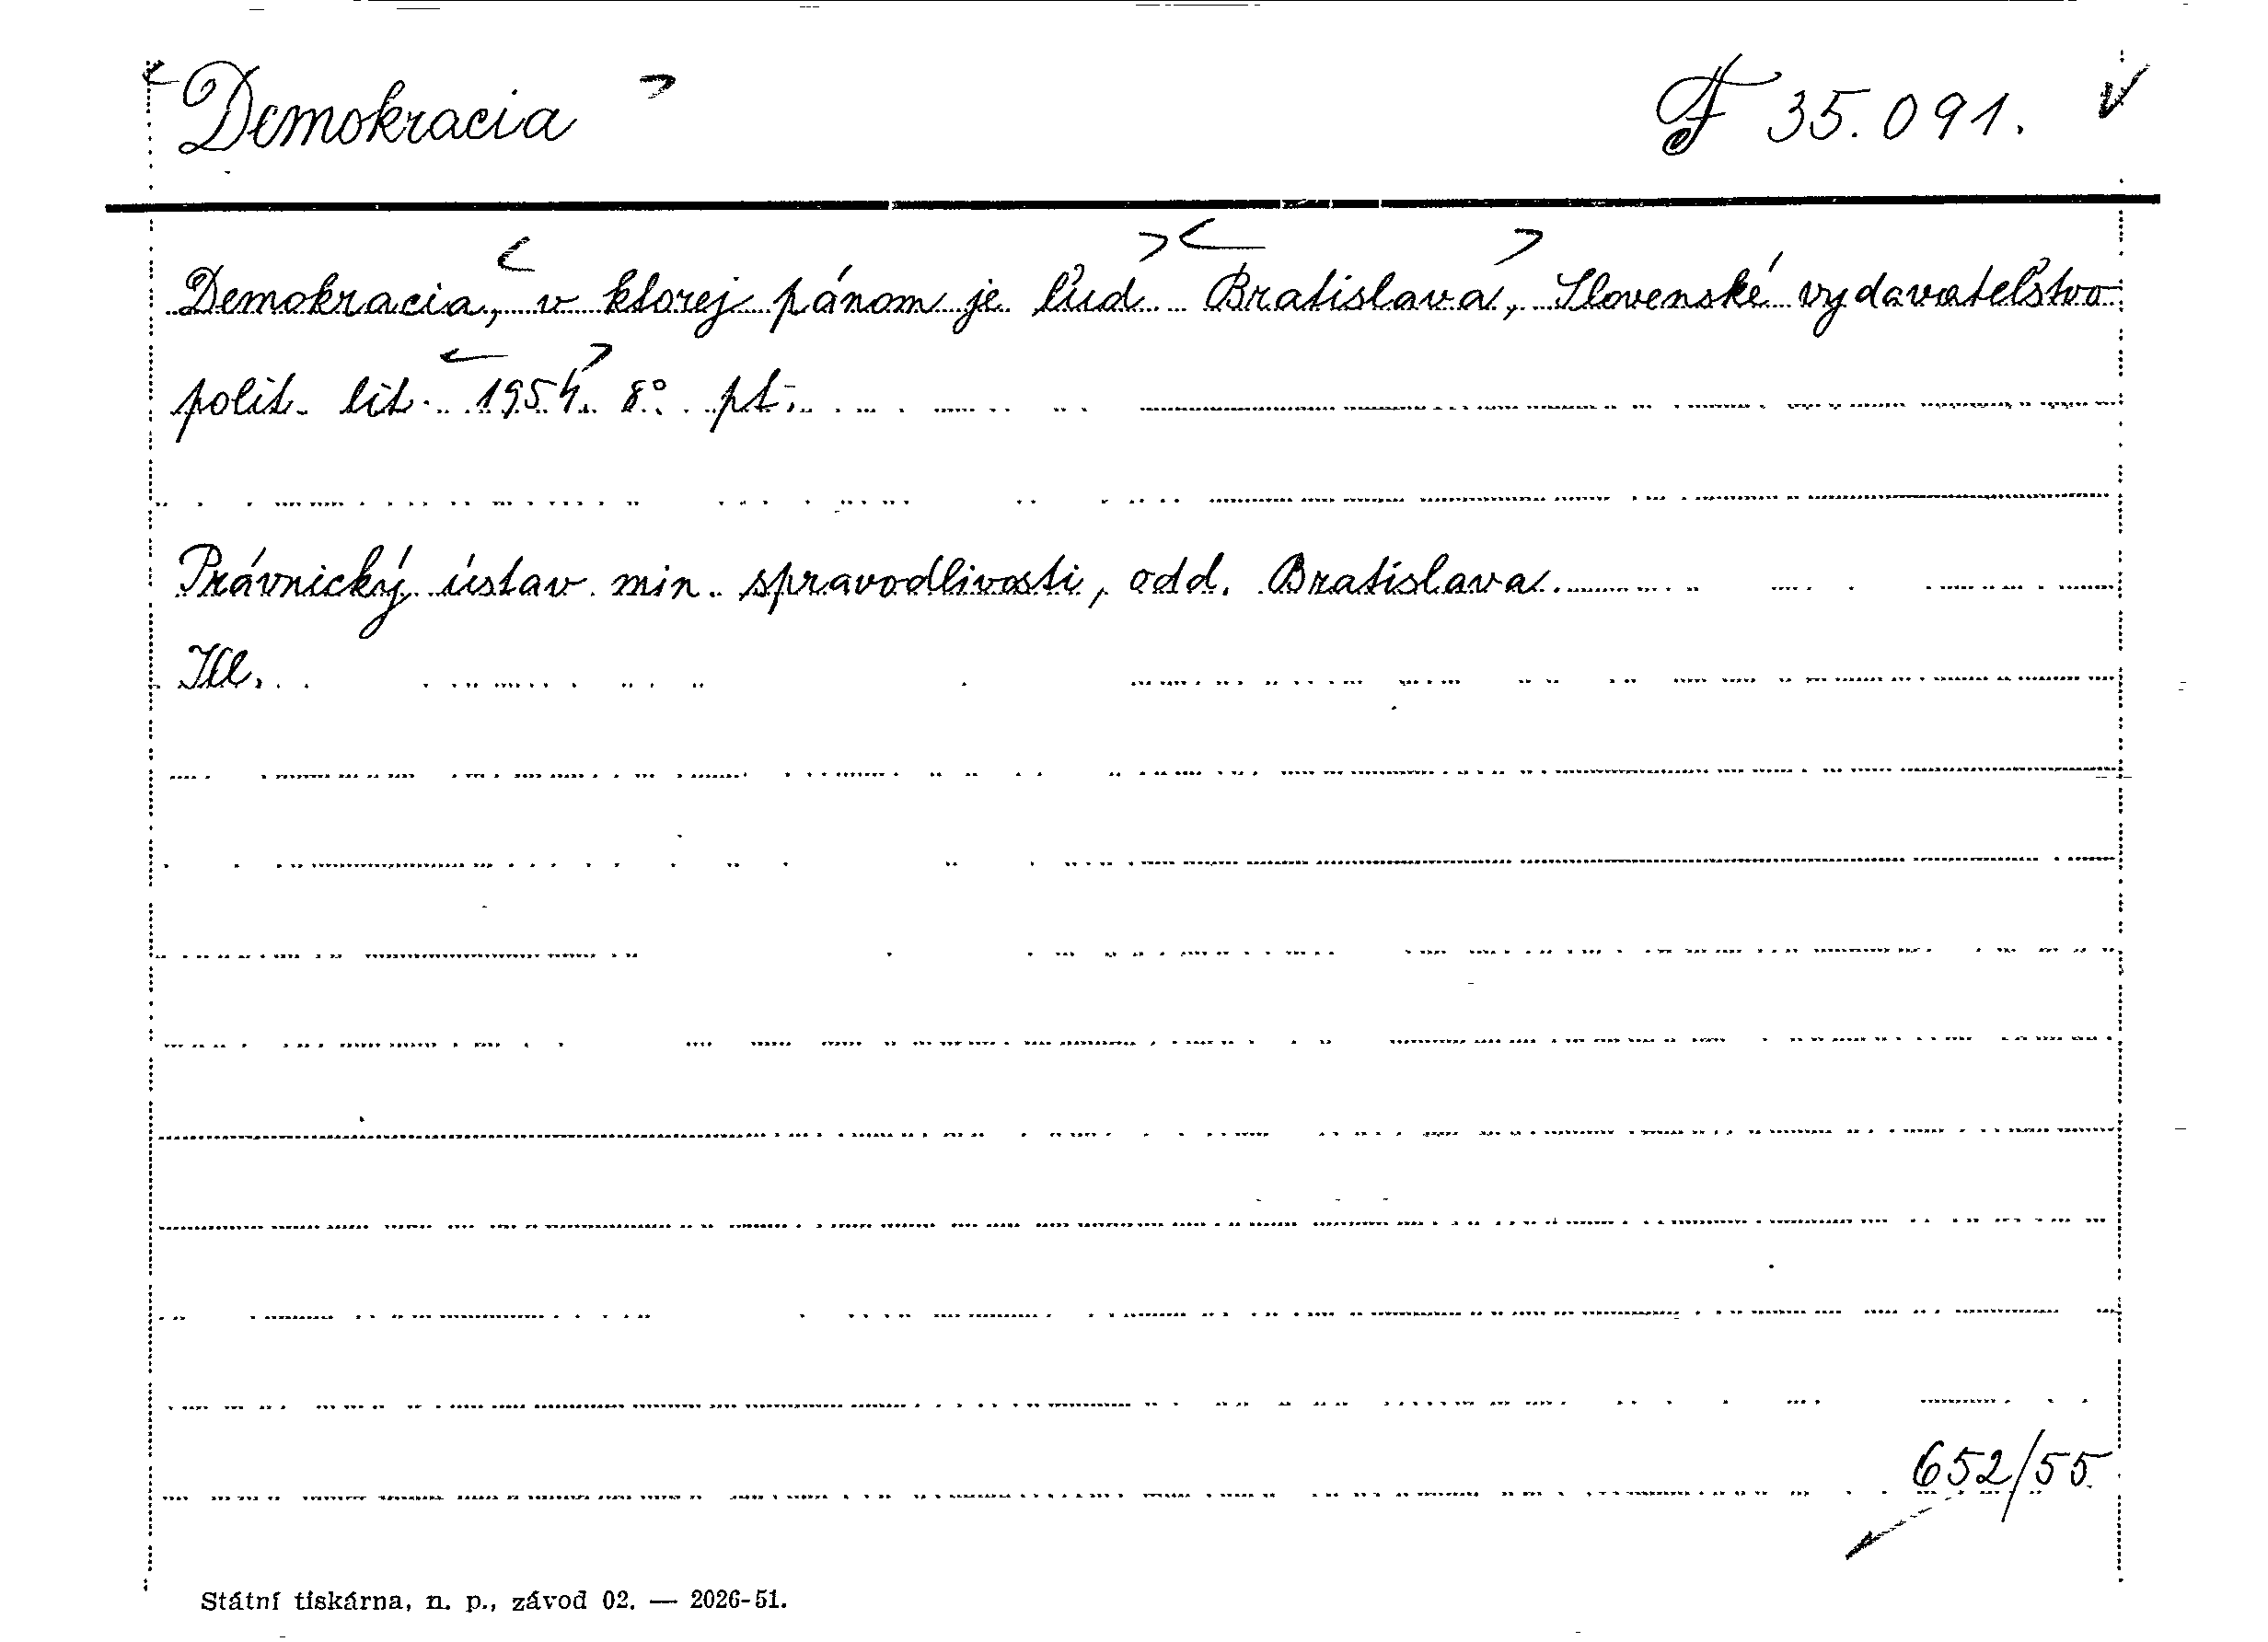 Demokracia F 35.091.
Demokracia, v ktorej pánom je ľud. Bratislava, Slovenské vydavateľstvo
polit. lit. 1954. 8°. pt.
Právnický ústav min. spravodlivosti, odd. Bratislava.
Ill.
652/55.
Státní tiskárna, n. p., závod 02. — 2026-51.